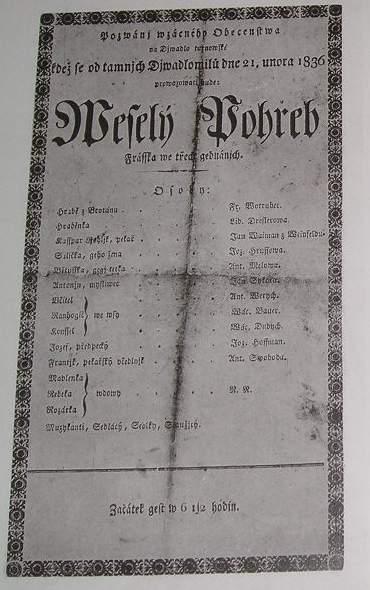 Pozwánj wzácného Obecenstwa
na Djwadlo turnowské
kdež se od tamnjch Djwadlomilů dne 21. unora 1836
prowozowati bude:
Weselý Pohřeb
Frásska we třech gednánjch.
Osoby:
Hrabě z Brotánu . Fr. Wotrubec.
Hraběnka Lid. Dreslerowa.
Kasspar pekař Jan Waiman z Weinfeldu.
Silička, geho žena Joz. Hrussowa.
gegj tetka Ant. Melowa.
Antonjn, myslivec Jan Sykora.
Učitel Ant. Werych.
Ranhogič we wsy Wác. Bauer.
Konssel Wác. Dubych.
Jozef, předpecký Joz. Hoffman.
Frantjk, pekařský učedlnjk Ant. Swoboda.
Madlenka
Rebeka wdowy N. N.
Rozárka
Muzykanti, Sedlácy, Selky, Služjcý.
Začátek gest w 6 1j2 hodin.